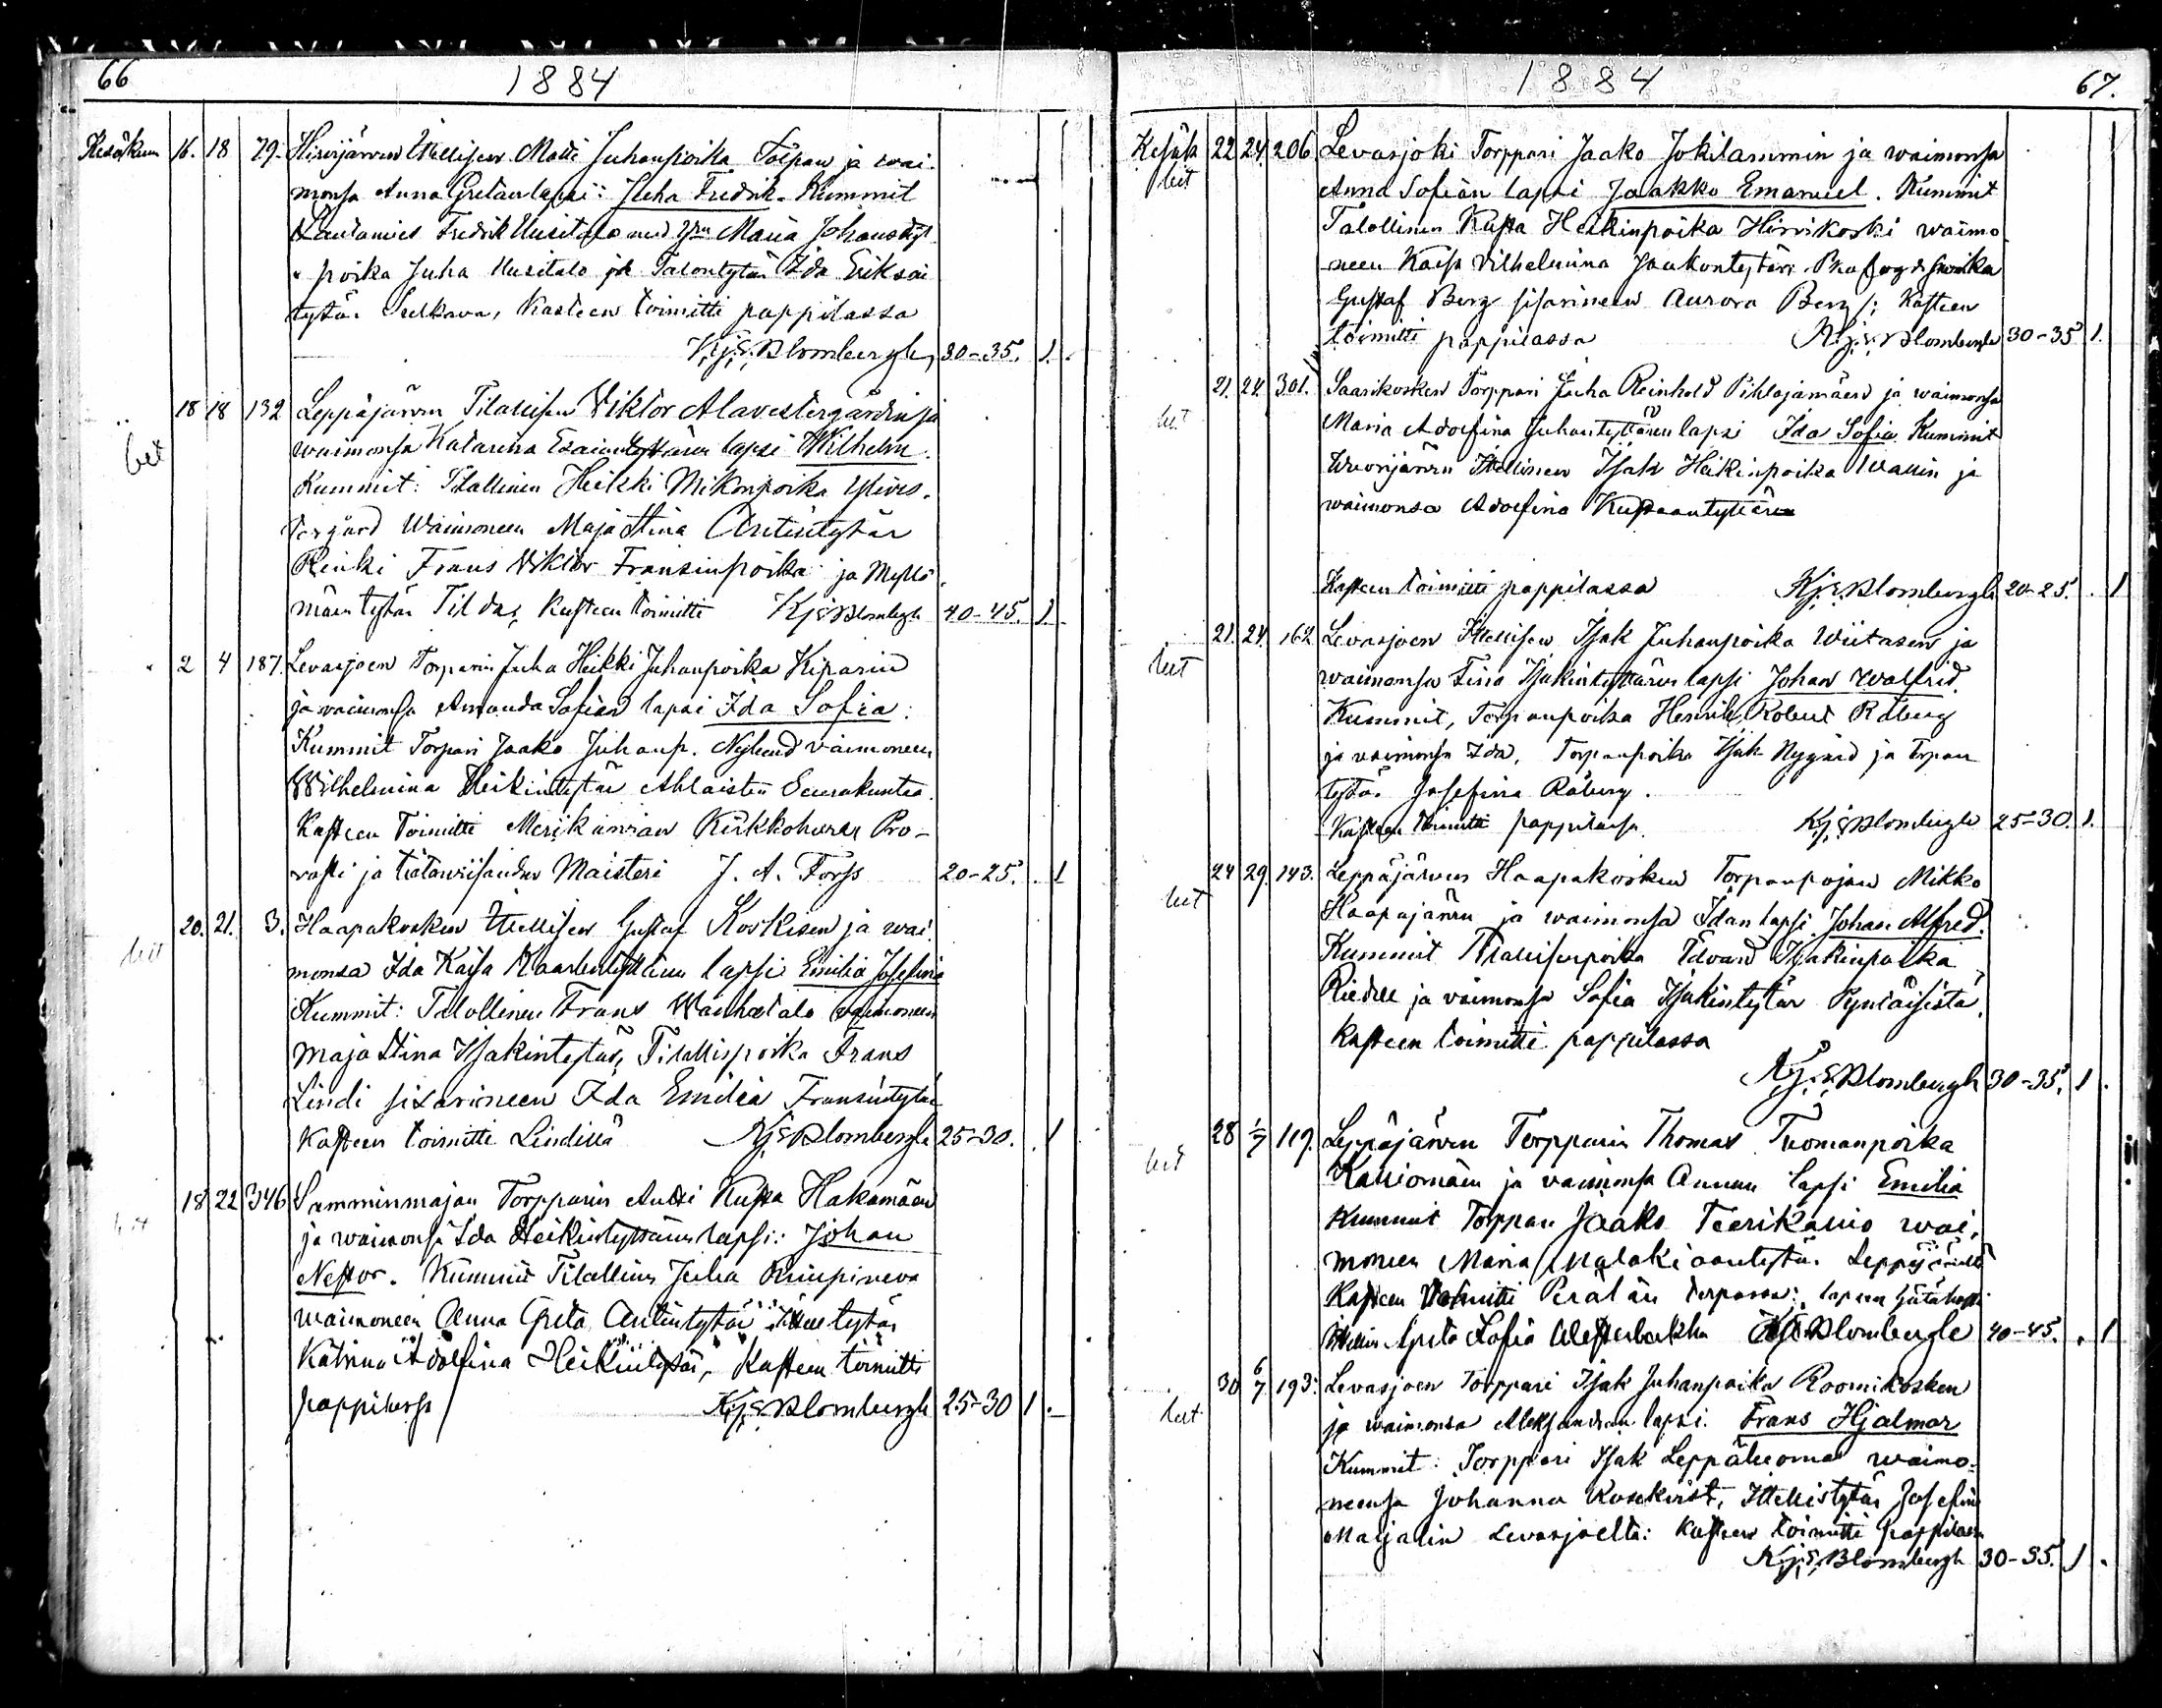 66
1884
Kesäkuu 16. 18 79. Hirvijärven Itellisen Matti Juhanpoika Torpan ja wai-
monsa Anna Gretan lapsi: Juha Fredrik. Kummit
Lautamies Fredrik Uusitalo Maria Johansdtr
poika Juha Uusitalo ja Talontytär Ida Erikin
tytär Seekava, Kasteen toimitti pappilassa
Kj. E. Blombergh 30-35. 1.
18 18 132 Leppäjärven Tilallisen Viktor Alavestergårdin ja
leit
waimonsa Katarina Esaiintyttären lapsi Wilhelm.
Kummit: Tilallinen Heikki Mikonpoika
gård Waimoneen Maja Stina Antintytär
Renki Frans Viktor Fransinpoika ja Myllö
mäen tytär Tilda, Kasteen toimitti Kj E Blombergh 40-45. 1.
" 2 4 187. Levasjoen Torpparin Juha Heikki Juhanpoika Kiparin
ja waimonsa Amanda Sofian lapsi Ida Sofia:
Kummit Torpari Jaako Juhanp. Nylund vaimoneen
Wilhelmina Heikintytär Ahlaisten Seurakuntaa.
Kasteen Toimitti Merikarvian Kirkkoherra Pro-
vasti ja Maisteri J. A. Forss 20-25. . 1
20. 21. 3. Haapakosken Itellisen Gustaf Koskisen ja wai-
leit
monsa Ida Kaisa Kaarlentyttären lapsi Emilia Josefina
Kummit: Talollinen Frans Wanhatalo waimoneen
Maja Stina Isakintytär, Tilallispoika Frans
Lindi sisarineen Ida Emilia Fransintytär
Kasteen toimitti Lindillä Kj E Blombergh 25-30. . 1
18 22 346 Samminmajan Torpparin Antti Kustaa Hakamäen
ja waimonsa Ida Heikintyttären lapsi: Johan
Nestor. Kummit Tilallinen Juha
waimoneen Anna Greta Antintytär tytär
Katrina Adolfina Heikintytär, Kasteen toimitti
pappilassa Kj. E. Blombergh 25-30 1 .
1884
67.
Kesäk 22 24 206 Levasjoki Torppari Jaako Jokilammin ja waimonsa
leit
Anna Sofian lapsi Jaakko Emanuel. Kummit
Talollinen Kustaa Heikinpoika Hirvikoski waimo-
neen Kaisa Vilhelmina Jaakontytär.
Gustaf Berg sisarineen Aurora Berg; Kasteen
toimitti pappilassa Kj. E. Blombergh 30-35 1.
21. 24. 301. Saarikosken Torppari Juha Reinhold Pihlajamäen ja waimonsa
leit
Maria Adolfina Juhantyttären lapsi Ida Sofia Kummit
Wuorijärven Itellinen Isak Heikinpoika Wallin ja
waimonsa Adolfina Kustaantyttären
Kasteen toimitti pappilassa Kj. E. Blombergh 20-25. . 1
21. 24. 162 Levasjoen Itellisen Isak Juhanpoika Wiitasen ja
leit
waimonsa Fina Isakintyttären lapsi Johan Walfrid.
Kummit, Torpanpoika Henrik Robert Råberg
ja vaimonsa Ida, Torpanpoika Isak Nygård ja Torpan
tytär Josefina Råberg.
Kasteen toimitti pappilassa. Kj. E Blombergh 25-30. 1.
24 29. 143. Leppäjärven Haapakosken Torpanpojan Mikko
leit
Haapajärven ja waimonsa Idan lapsi Johan Alfred.
Kummit Tilallisenpoika Edvard Isakinpoika
ja vaimonsa Sofia Isakintytär
Kasteen toimitti pappilassa
Kj. E Blombergh 30-35. 1.
28 1/7 119. Leppäjärven Torpparin Thomas Tuomanpoika
leit
Kalliomäen ja vaimonsa Annan lapsi Emilia
Kummit Torppari Jaako Teerikallio wai-
moneen Maria Malakiaantytär Leppäjärveltä
Kasteen toimitti Perälän torpassa: lapsen hätäkasti
Greta Sofia Westerbacka Kj E Blombergh 40-45. . 1
30 6/7 193. Levasjoen Torppari Isak Juhanpoika Roomikosken
leit
ja waimonsa Aleksandran lapsi Frans Hjalmar
Kummit: Torppari Isak Leppäluoma waimo-
neensa Johanna Rosekvist, Itellistytär Josefina
Maijalin Levasjoelta: Kasteen toimitti pappilassa
Kj. E. Blombergh 30-35. 1 .